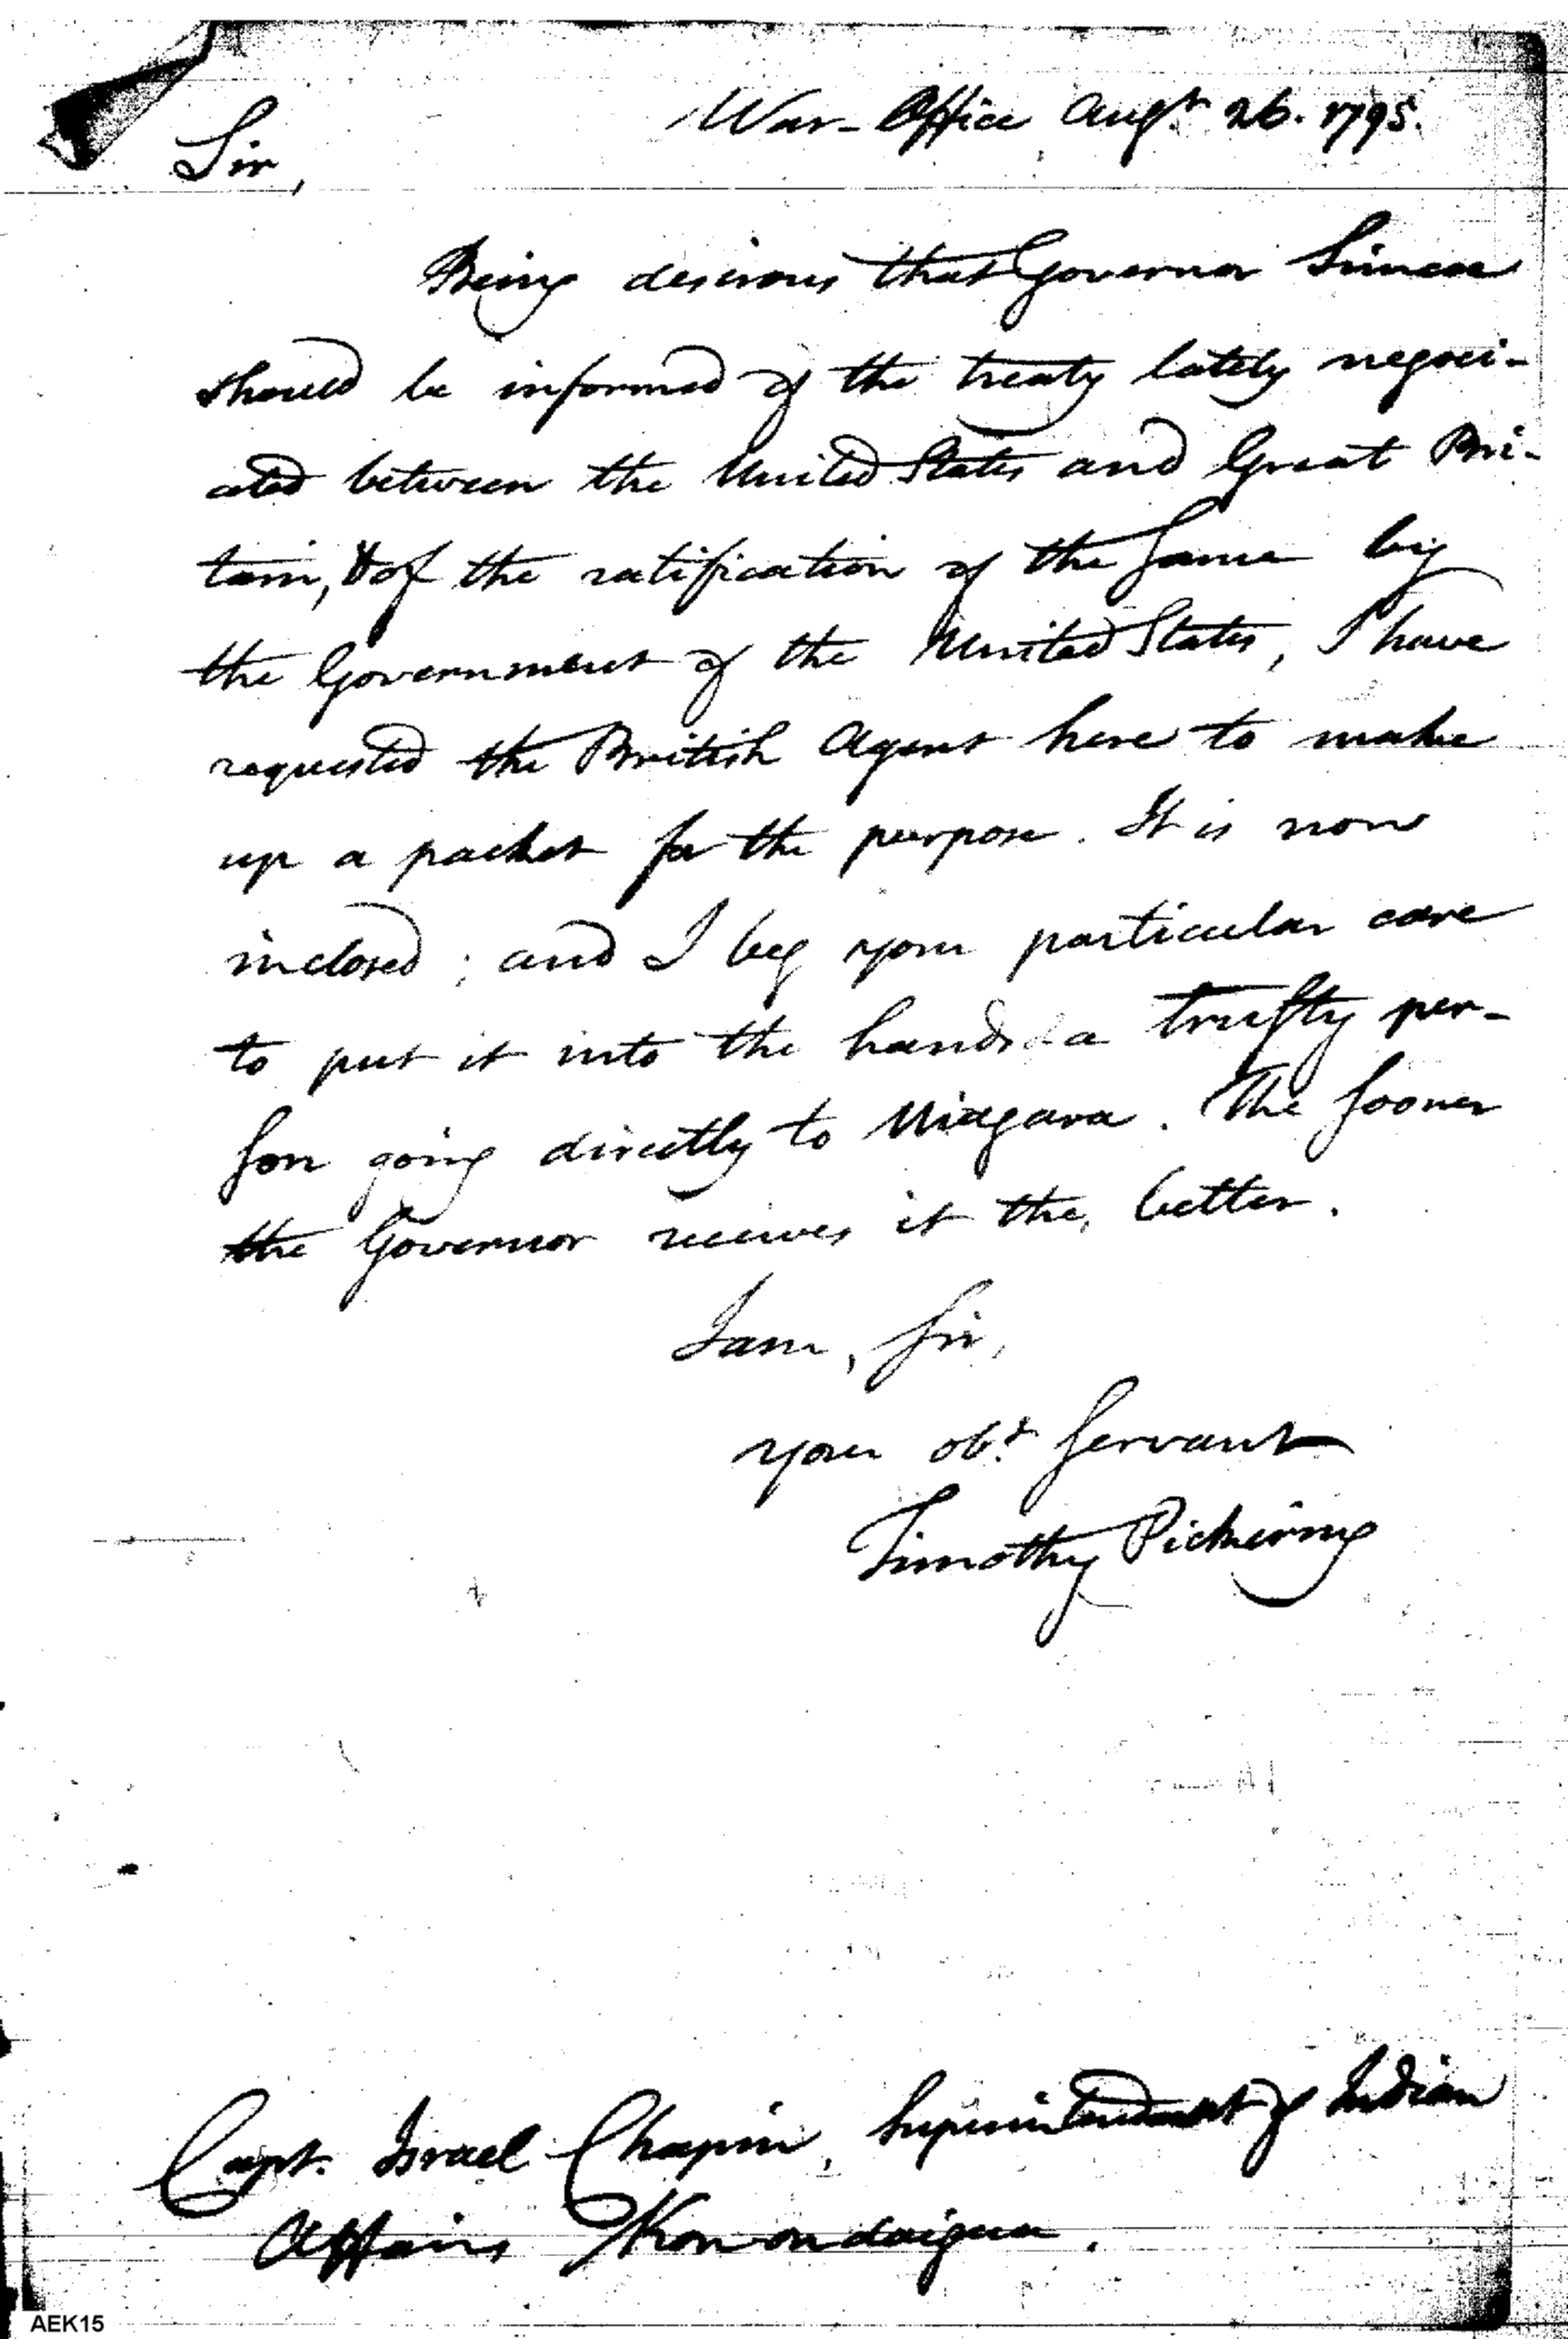 War-Office Augt. 26. 1795.
Sir,
Being desirous that Governor Simcoe
should be informed of the treaty lately negoci-
ated between the United States and Great Bri-
tain, & of the ratification of the same by
the Government of the United States, I have
requested the British Agent here to make
up a packet for the purpose. It is now
inclosed; and I beg your particular care
to put it into the hands of a trusty per-
son going directly to Niagara. The sooner
the Governor receives it the better.
I am, Sir,
your obt. servant
Timothy Pickering
Capt. Israel Chapin, Superintendent of Indian
Affairs Konondaigua.
AEK15